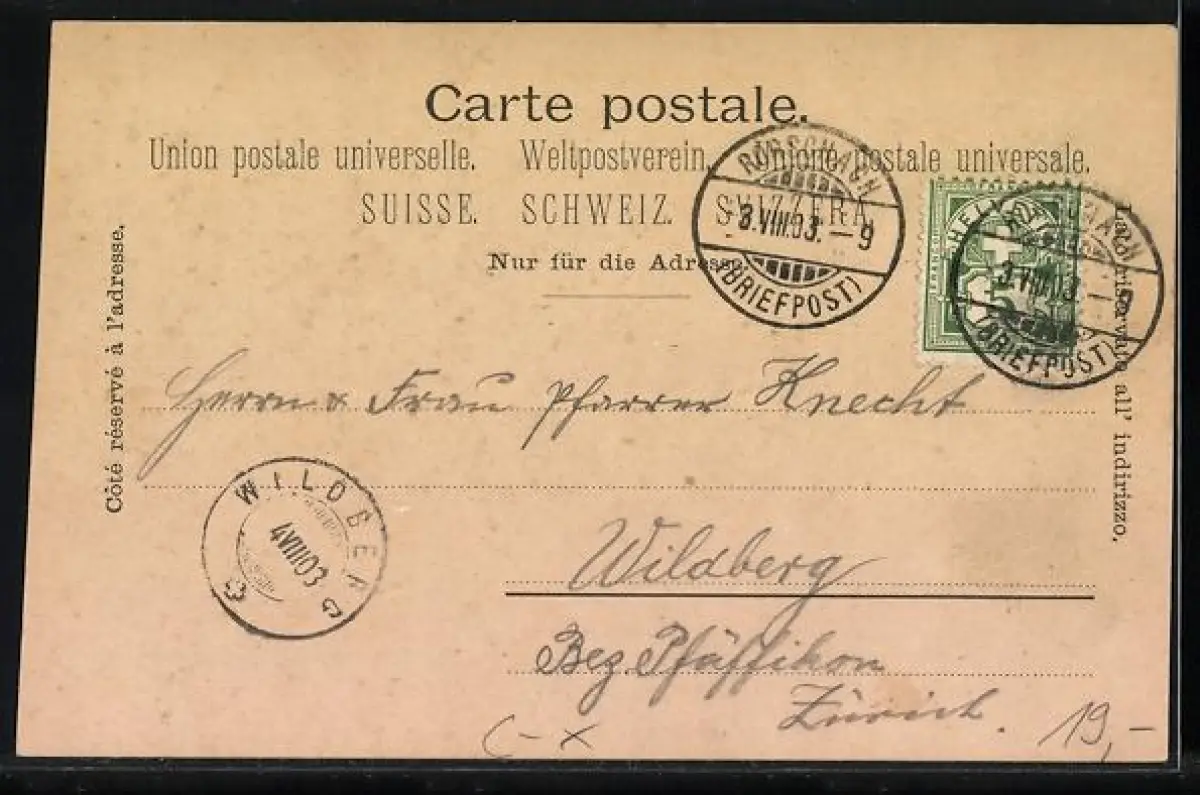 Carte postale.
Union postale universelle. Weltpostverein. Unione postale universale.
SUISSE. SCHWEIZ. SVIZZERA.
Nur für die Adresse.
Côté réservé à l'adresse.
Lato riservato all' indirizzo.
RORSCHACH
3.VIII.03.–9
(BRIEFPOST)
HELVETIA
FRANCO
RORSCHACH
3.VIII.03.–9
(BRIEFPOST)
Herrn & Frau Pfarrer Knecht
WILDBERG
4VIII03
Wildberg
Bez. Pfäffikon
Zürich.
19,-